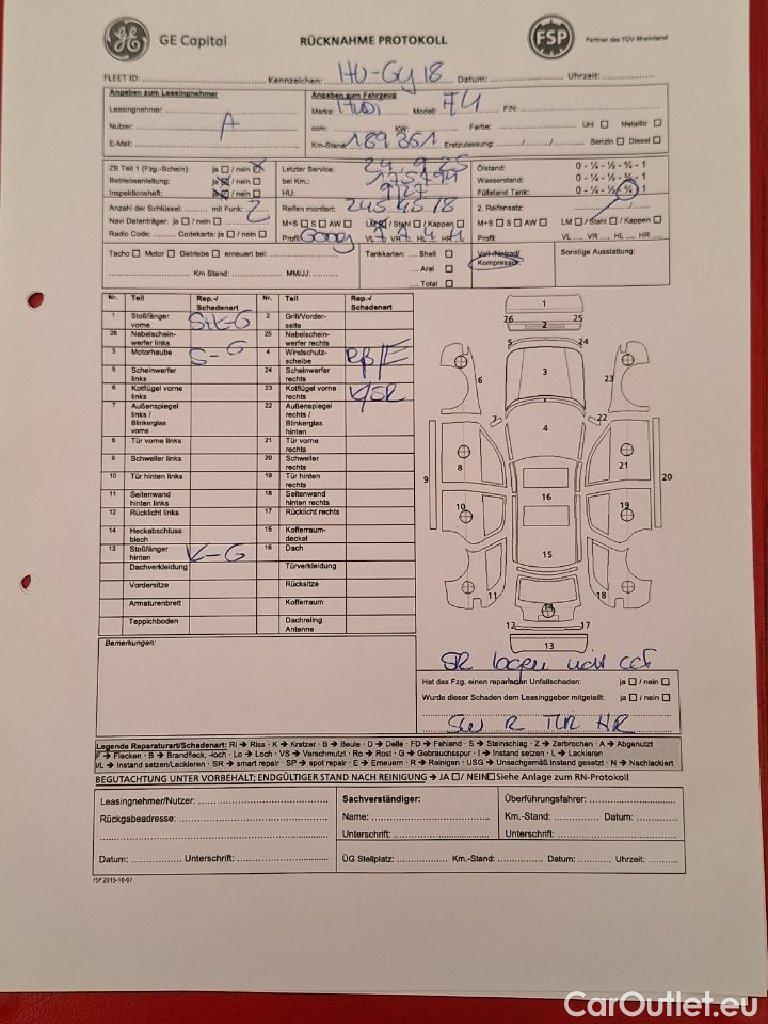 GE Capital
RÜCKNAHME PROTOKOLL
FSP
Partner des TÜV Rheinland
FLEET ID: Kennzeichen: HU-Gy 18 Datum: Uhrzeit:
Angaben zum Leasingnehmer
Angaben zum Fahrzeug
Leasingnehmer:
Marke: Modell: FIN:
Nutzer: A
KW: Farbe: Uni Metallic
E-Mail:
Km-Stand: 189 861 Erstzulassung: Benzin Diesel
ZB Teil 1 (Fzg.-Schein): ja / nein
Letzter Service: 24. 9. 25
Ölstand: 0 - ¼ - ½ - ¾ - 1
Betriebsanleitung: ja / nein
bei Km.:
Wasserstand: 0 - ¼ - ½ - ¾ - 1
Inspektionsheft: ja / nein
HU: 9/27
Füllstand Tank: 0 - ¼ - ½ - ¾ - 1
Anzahl der Schlüssel: mit Funk: 2
Reifen montiert: 245 45 18
2. Reifensatz:
Navi Datenträger: ja / nein
M+S S AW LM / Stahl / Kappen
M+S S AW LM / Stahl / Kappen
Radio Code: Codekarte: ja / nein
Profil: VL 7 VR 7 HL 4 HR 4
Profil: VL VR HL HR
Tacho Motor Getriebe erneuert bei:
Tankkarten: Shell
Kompressor:
Sonstige Ausstattung:
Km Stand: MM/JJ:
Aral
Total
Nr. Teil Rep.-/ Schadenart Nr. Teil Rep.-/ Schadenart:
1 Stoßfänger vorne StK-G 2 Grill/Vorder-seite
26 Nebelschein-werfer links 25 Nebelschein-werfer rechts
3 Motorhaube S-G 4 Windschutz-scheibe
5 Scheinwerfer links 24 Scheinwerfer rechts
6 Kotflügel vorne links 23 Kotflügel vorne rechts K/SR
7 Außenspiegel links / Blinkerglas vorne 22 Außenspiegel rechts / Blinkerglas hinten
8 Tür vorne links 21 Tür vorne rechts
9 Schweller links 20 Schweller rechts
10 Tür hinten links 19 Tür hinten rechts
11 Seitenwand hinten links 18 Seitenwand hinten rechts
12 Rücklicht links 17 Rücklicht rechts
14 Heckabschluss blech 15 Kofferraum-deckel
13 Stoßfänger hinten K-G 16 Dach
Dachverkleidung Türverkleidung
Vordersitze Rücksitze
Armaturenbrett Kofferraum
Teppichboden Dachreling Antenne
1
26 25
2
5 24
3
6
23
7
22
4
8
21
9
20
16
10
19
15
11
18
14
12 17
13
Bemerkungen:
Hat das Fzg. einen reparierten Unfallschaden: ja / nein
Wurde dieser Schaden dem Leasinggeber mitgeteilt: ja / nein
Legende Reparaturart/Schadenart: RI → Riss · K → Kratzer · B → Beule · D → Delle · FD → Fehlend · S → Steinschlag · Z → Zerbrochen · A → Abgenutzt
F → Flecken · B → Brandfleck, -loch · Lo → Loch · VS → Verschmutzt · Ro → Rost · G → Gebrauchsspur · I → Instand setzen · L → Lackieren
I/L → Instand setzen/Lackieren · SR → smart repair · SP → spot repair · E → Erneuern · R → Reinigen · USG → Unsachgemäß instand gesetzt · N → Nachlackiert
BEGUTACHTUNG UNTER VORBEHALT; ENDGÜLTIGER STAND NACH REINIGUNG → JA / NEIN Siehe Anlage zum RN-Protokoll
Leasingnehmer/Nutzer:
Sachverständiger:
Überführungsfahrer:
Rückgabeadresse:
Name:
Km.-Stand: Datum:
Unterschrift:
Unterschrift:
Datum: Unterschrift:
ÜG Stellplatz: Km.-Stand: Datum: Uhrzeit:
FSP 2015-10-07
CarOutlet.eu